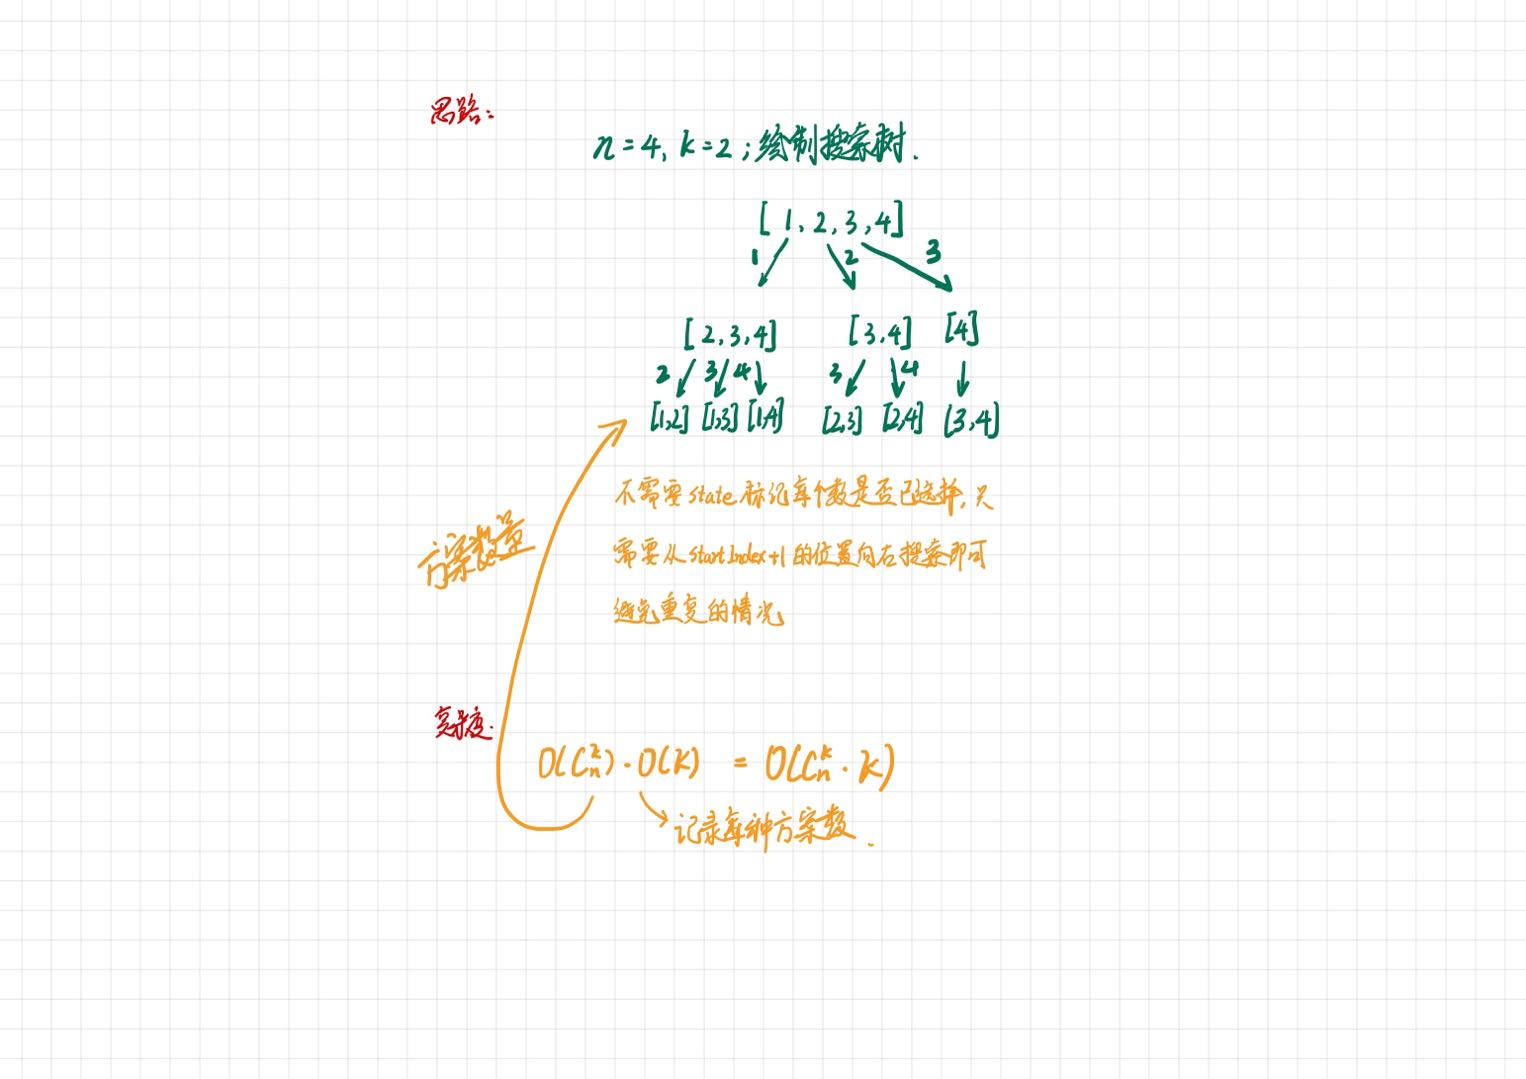 思路:
n=4, k=2;绘制搜索树.
[1,2,3,4]
1 2 3
[2,3,4] [3,4] [4]
2 3 4 3 4
[1,2] [1,3] [1,4] [2,3] [2,4] [3,4]
不需要state标记每个数是否已选择,只
需要从startIndex+1的位置向右搜索即可
避免重复的情况
方案数量
复杂度:
O(C_n^k)·O(k) = O(C_n^k·k)
记录每种方案数.